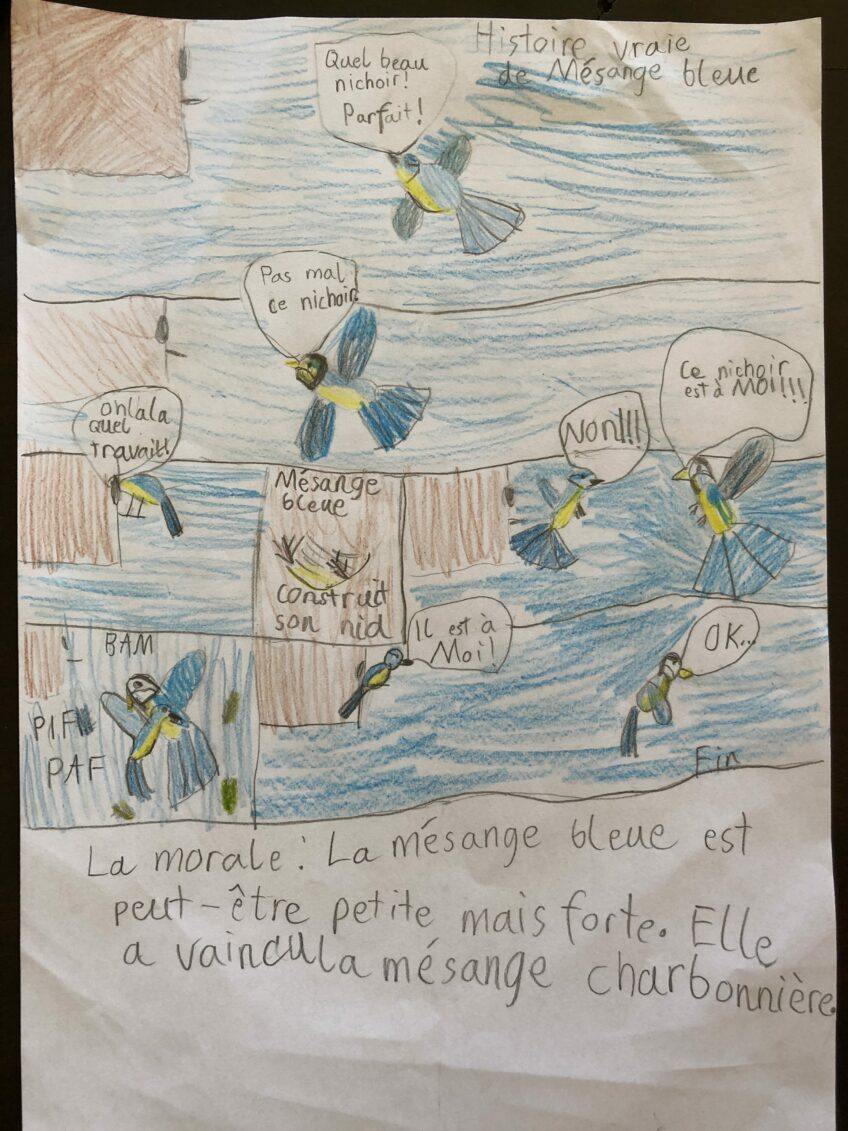 Histoire vraie
de Mésange bleue
Quel beau
nichoir!
Parfait!
Pas mal
ce nichoir
oh lala
quel
travail!
Mésange
bleue
construit
son nid
Non!!!
Ce nichoir
est à MOI!!!
BAM
PIF
PAF
Il est à
Moi!
OK...
Fin
La morale: La mésange bleue est
peut-être petite mais forte. Elle
a vaincu la mésange charbonnière.